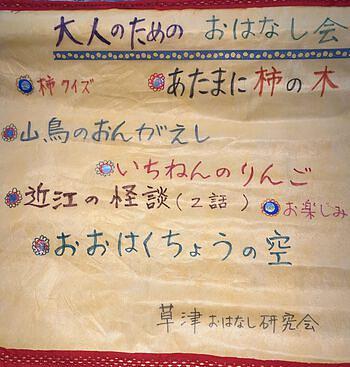 大人のための おはなし会
柿クイズ
あたまに柿の木
山鳥のおんがえし
いちねんのりんご
近江の怪談(2話)
お楽しみ
おおはくちょうの空
草津おはなし研究会